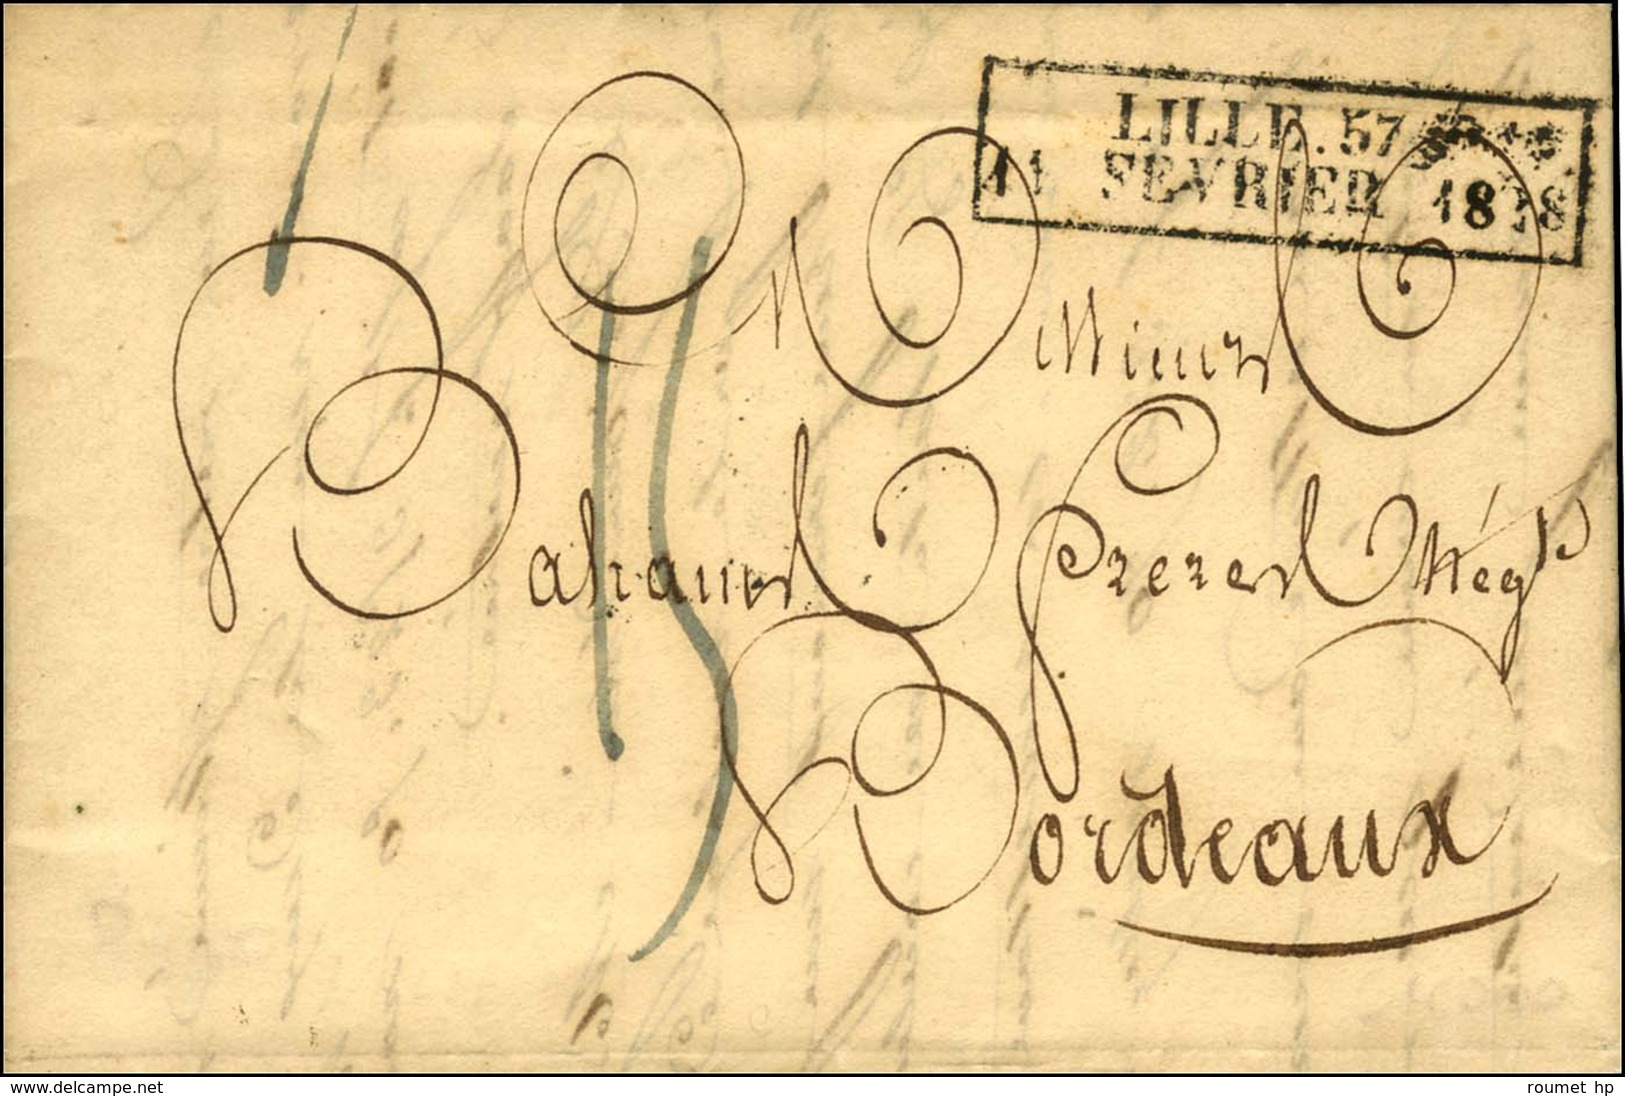 LILLE. 57
11 FEVRIER 1828
Messieurs
Bahans Freres Nég.ts
Bordeaux
15
www.delcampe.net
roumet_hp